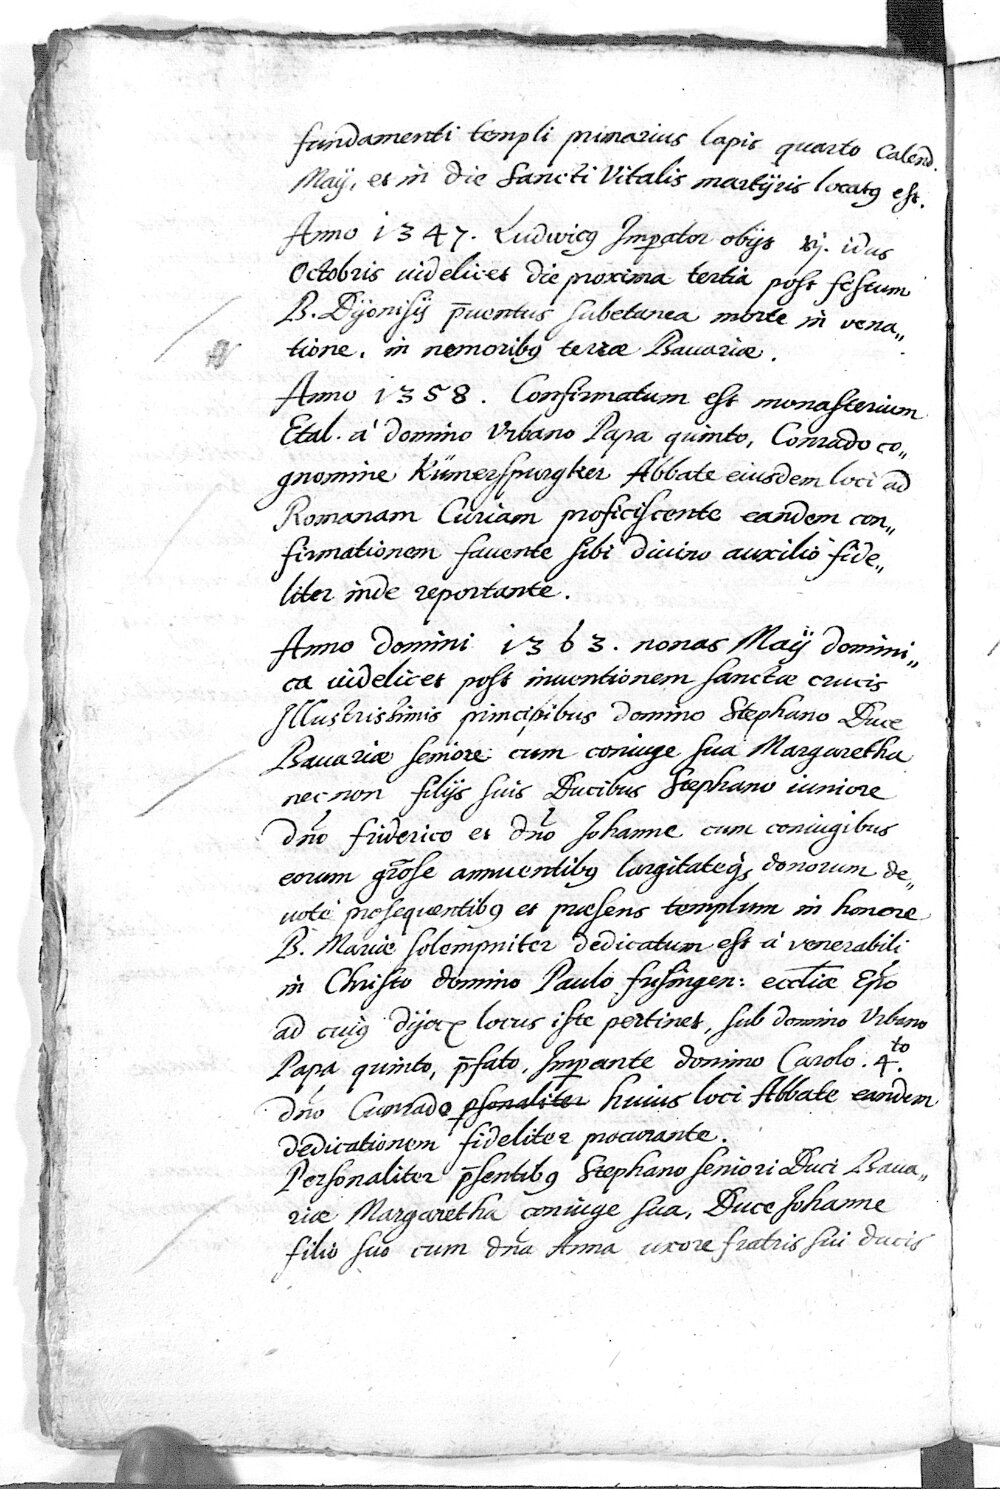 fundamenti templi primarius lapis quarto Calend.
Maÿ, et in die Sancti Vitalis martÿris locatꝰ est.
Anno 1347. Ludwicꝰ Imꝑator obijt vj. idus
Octobris uidelicet die proxima tertia post festum
B. Dÿonisij p̄uentus subetanea morte in vena„
tione, in nemoribꝰ terræ Bauariæ.
Anno 1358. Confirmatum est monasterium
Etal. á domino Vrbano Papa quinto, Conrado co„
gnomine Kümerspurgker Abbate eiusdem loci ad
Romanam Curiam proficiscente eandem con„
firmationem fauente sibi diuino auxilio fide„
liter inde reportante.
Anno domini 1363. nonas Maÿ domini„
ca uidelicet post inuentionem sanctæ crucis
Illustrissimis principibus domino Stephano Duce
Bauariæ seniore cum coniuge sua Margaretha
nec non filijs suis Ducibus Stephano iuniore
dño friderico et dño Johanne cum coniugibus
eorum grōse annuentibꝰ largitateq̃ donorum de„
uoté prosequentibꝰ et præsens templum in honore
B. Mariæ solempniter dedicatum est á venerabili
in Christo domino Paulo frisingen: eccl̄iæ Ep̃o
ad cuiꝰ dÿoc locus iste pertinet, sub domino Vrbano
Papa quinto, p̄fato, Imꝑante domino Carolo 4.to
dño Cunrado ꝑsonaliter huius loci Abbate eandem
dedicationem fideliter procurante.
Personaliter p̄sentibꝰ Stephano seniori Duci Baua„
riæ Margaretha coniuge sua, Duce Johanne
filio suo cum dña Anna uxore fratris sui ducis